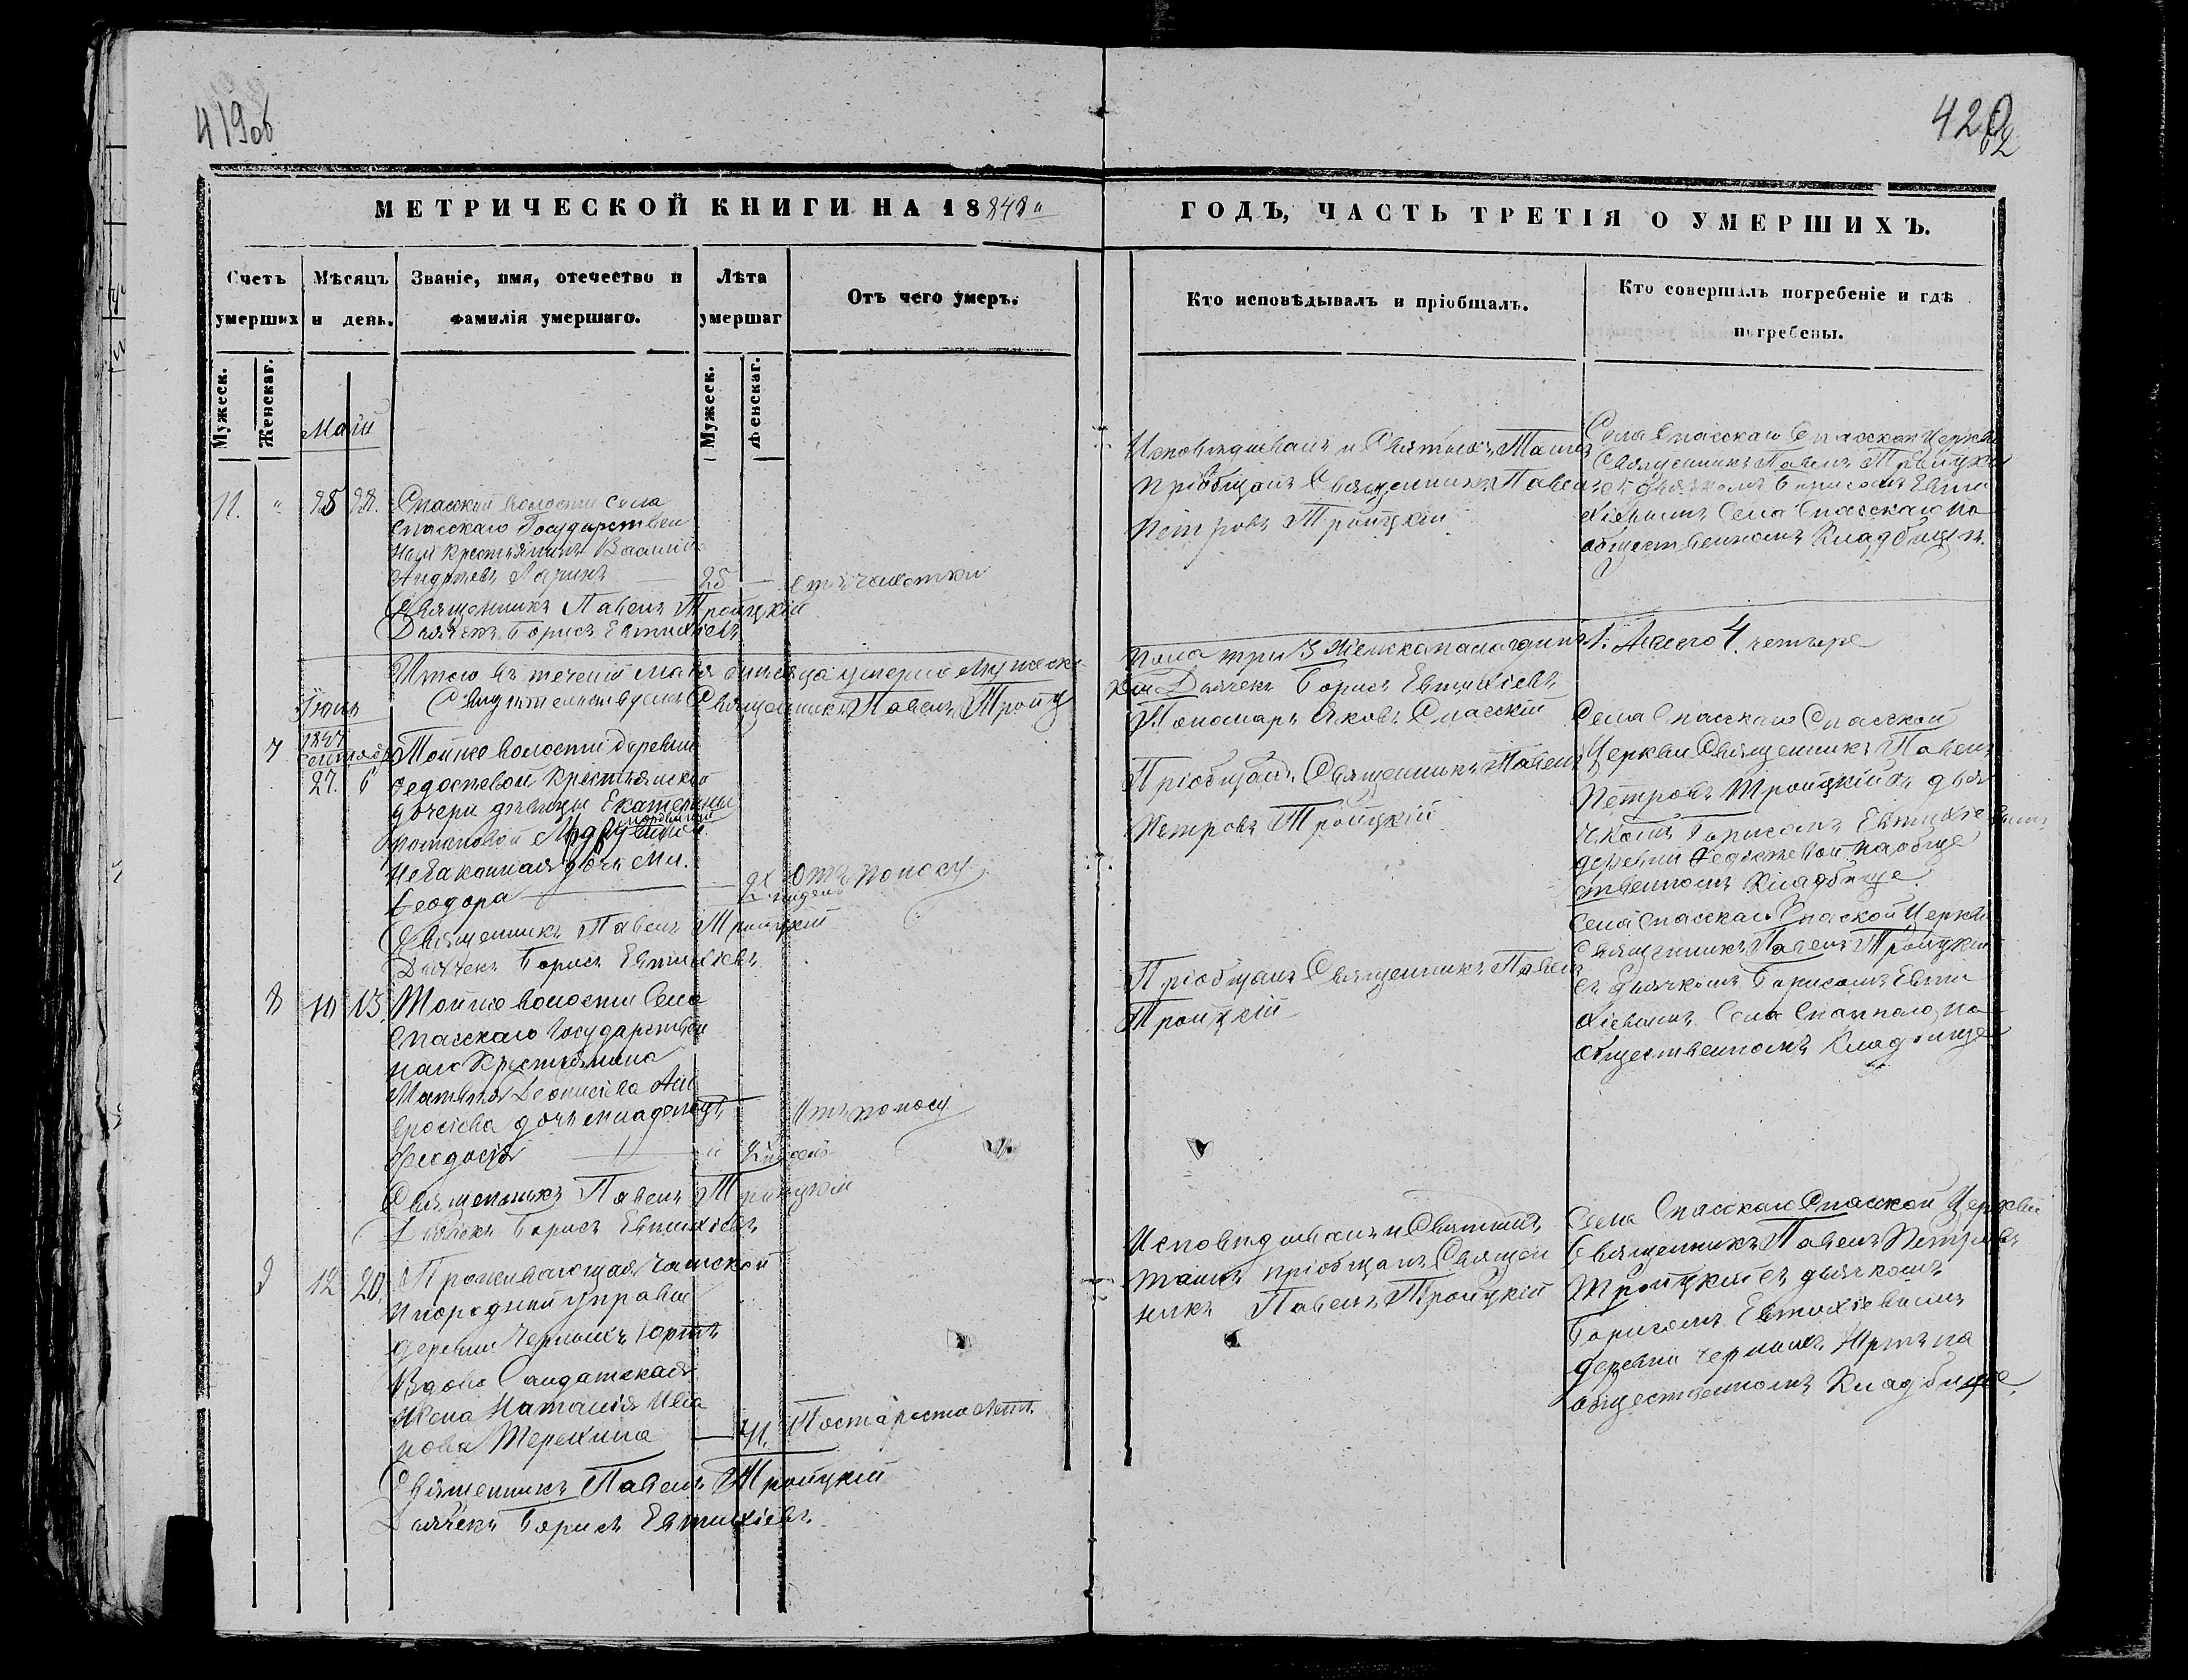 419об
МЕТРИЧЕСКОЙ КНИГИ НА 18
Счетъ умершихъ
Мѣсяцъ и день.
Званіе, имя, отечество и фамилія умершаго.
Лѣта умершаг
Отъ чего умеръ.
Мужеск.
Женскаг.
Мужеск.
Женскаг.
Май
11. " 25 28. Спаской волости села
Спасскаго Государствен
ный крестьянинъ Василій
Андреевъ Ларинъ — 25 — отъ чахотки
Священникъ Павелъ Троицкій
Дьячекъ Борисъ Евтихіевъ
Итого въ теченіи мая месяца умерло мужеска
Священникъ Павелъ Троиц
Іюнь
7 1847 Сентябр Тойже волости деревни
27. 6 Федосеевой крестьянской
дочери девицы Екатерины
незаконная дочь
Феодора — Отъ поносу
Священникъ Павелъ Троицкій
Дьячекъ Борисъ Евтихіевъ
8 10 13. Тойже волости Села
Спасскаго Государствен
наго Крестьянина
дочь младенецъ Отъ поносу
Феодосія
Священникъ Павелъ Троицкій
Дьячекъ Борисъ Евтихіевъ
9 12 20. Проживающая
Инородной управы
деревни Черныхъ Юртъ
Вдова Салдатская
жена Наталія Ива
нова — 71. По старости летъ.
Священникъ Павелъ Троицкій
Дьячекъ Борисъ Евтихіевъ
420
ГОДЪ, ЧАСТЬ ТРЕТІЯ О УМЕРШИХЪ.
Кто исповѣдывалъ и пріобщалъ.
Кто совершалъ погребеніе и гдѣ погребены.
Исповедывалъ и Святыхъ Таинъ
Пріобщалъ Священникъ Павелъ
Петровъ Троицкій
Села Спасскаго Спасской Церкви
Священникъ Павелъ Троицкій
съ дьячкомъ Борисомъ Евти
хіевымъ Села Спасскаго на
общественномъ Кладбище.
пола три 3 женска пола одинъ 1. Всего 4 четыре
кій Дьячекъ Борисъ Евтихіевъ
Пономарь Яковъ Спасскій
Пріобщалъ Священникъ Павелъ
Петровъ Троицкій
Села Спасскаго Спасской
Церкви Священникъ Павелъ
Петровъ Троицкій съ дья
чкомъ Борисомъ Евтихіевымъ
деревни Федосеевой на обще
ственномъ Кладбище.
Пріобщалъ Священникъ Павелъ
Троицкій
Села Спасскаго Спаской Церкви
Священникъ Павелъ Троицкій
съ дьячкомъ Борисомъ Евти
хіевымъ Села Спасскаго на
общественномъ Кладбище
Исповедывалъ и Святыхъ
таинъ пріобщалъ Священ
никъ Павелъ Троицкій
Села Спасскаго Спаской Церкви
Священникъ Павелъ Петровъ
Троицкій съ дьячкомъ
Борисомъ Евтихіевымъ
деревни Черныхъ Юртъ на
общественномъ Кладбище.